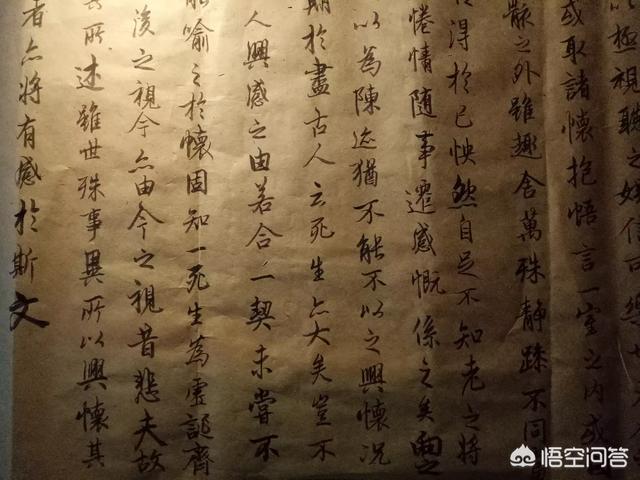 以極視聽之娛信可樂也
或取諸懷抱悟言一室之内或
骸之外雖趣舍萬殊静躁不同
得於己怏然自足不知老之將
惓情随事遷感慨係之矣向之
以為陳迹猶不能不以之興懷況
期於盡古人云死生亦大矣豈不
人興感之由若合一契未嘗不
能喻之於懷固知一死生為虛誕齊
後之視今亦由今之視昔悲夫故
其所述雖世殊事異所以興懷其
者亦將有感於斯文
悟空问答